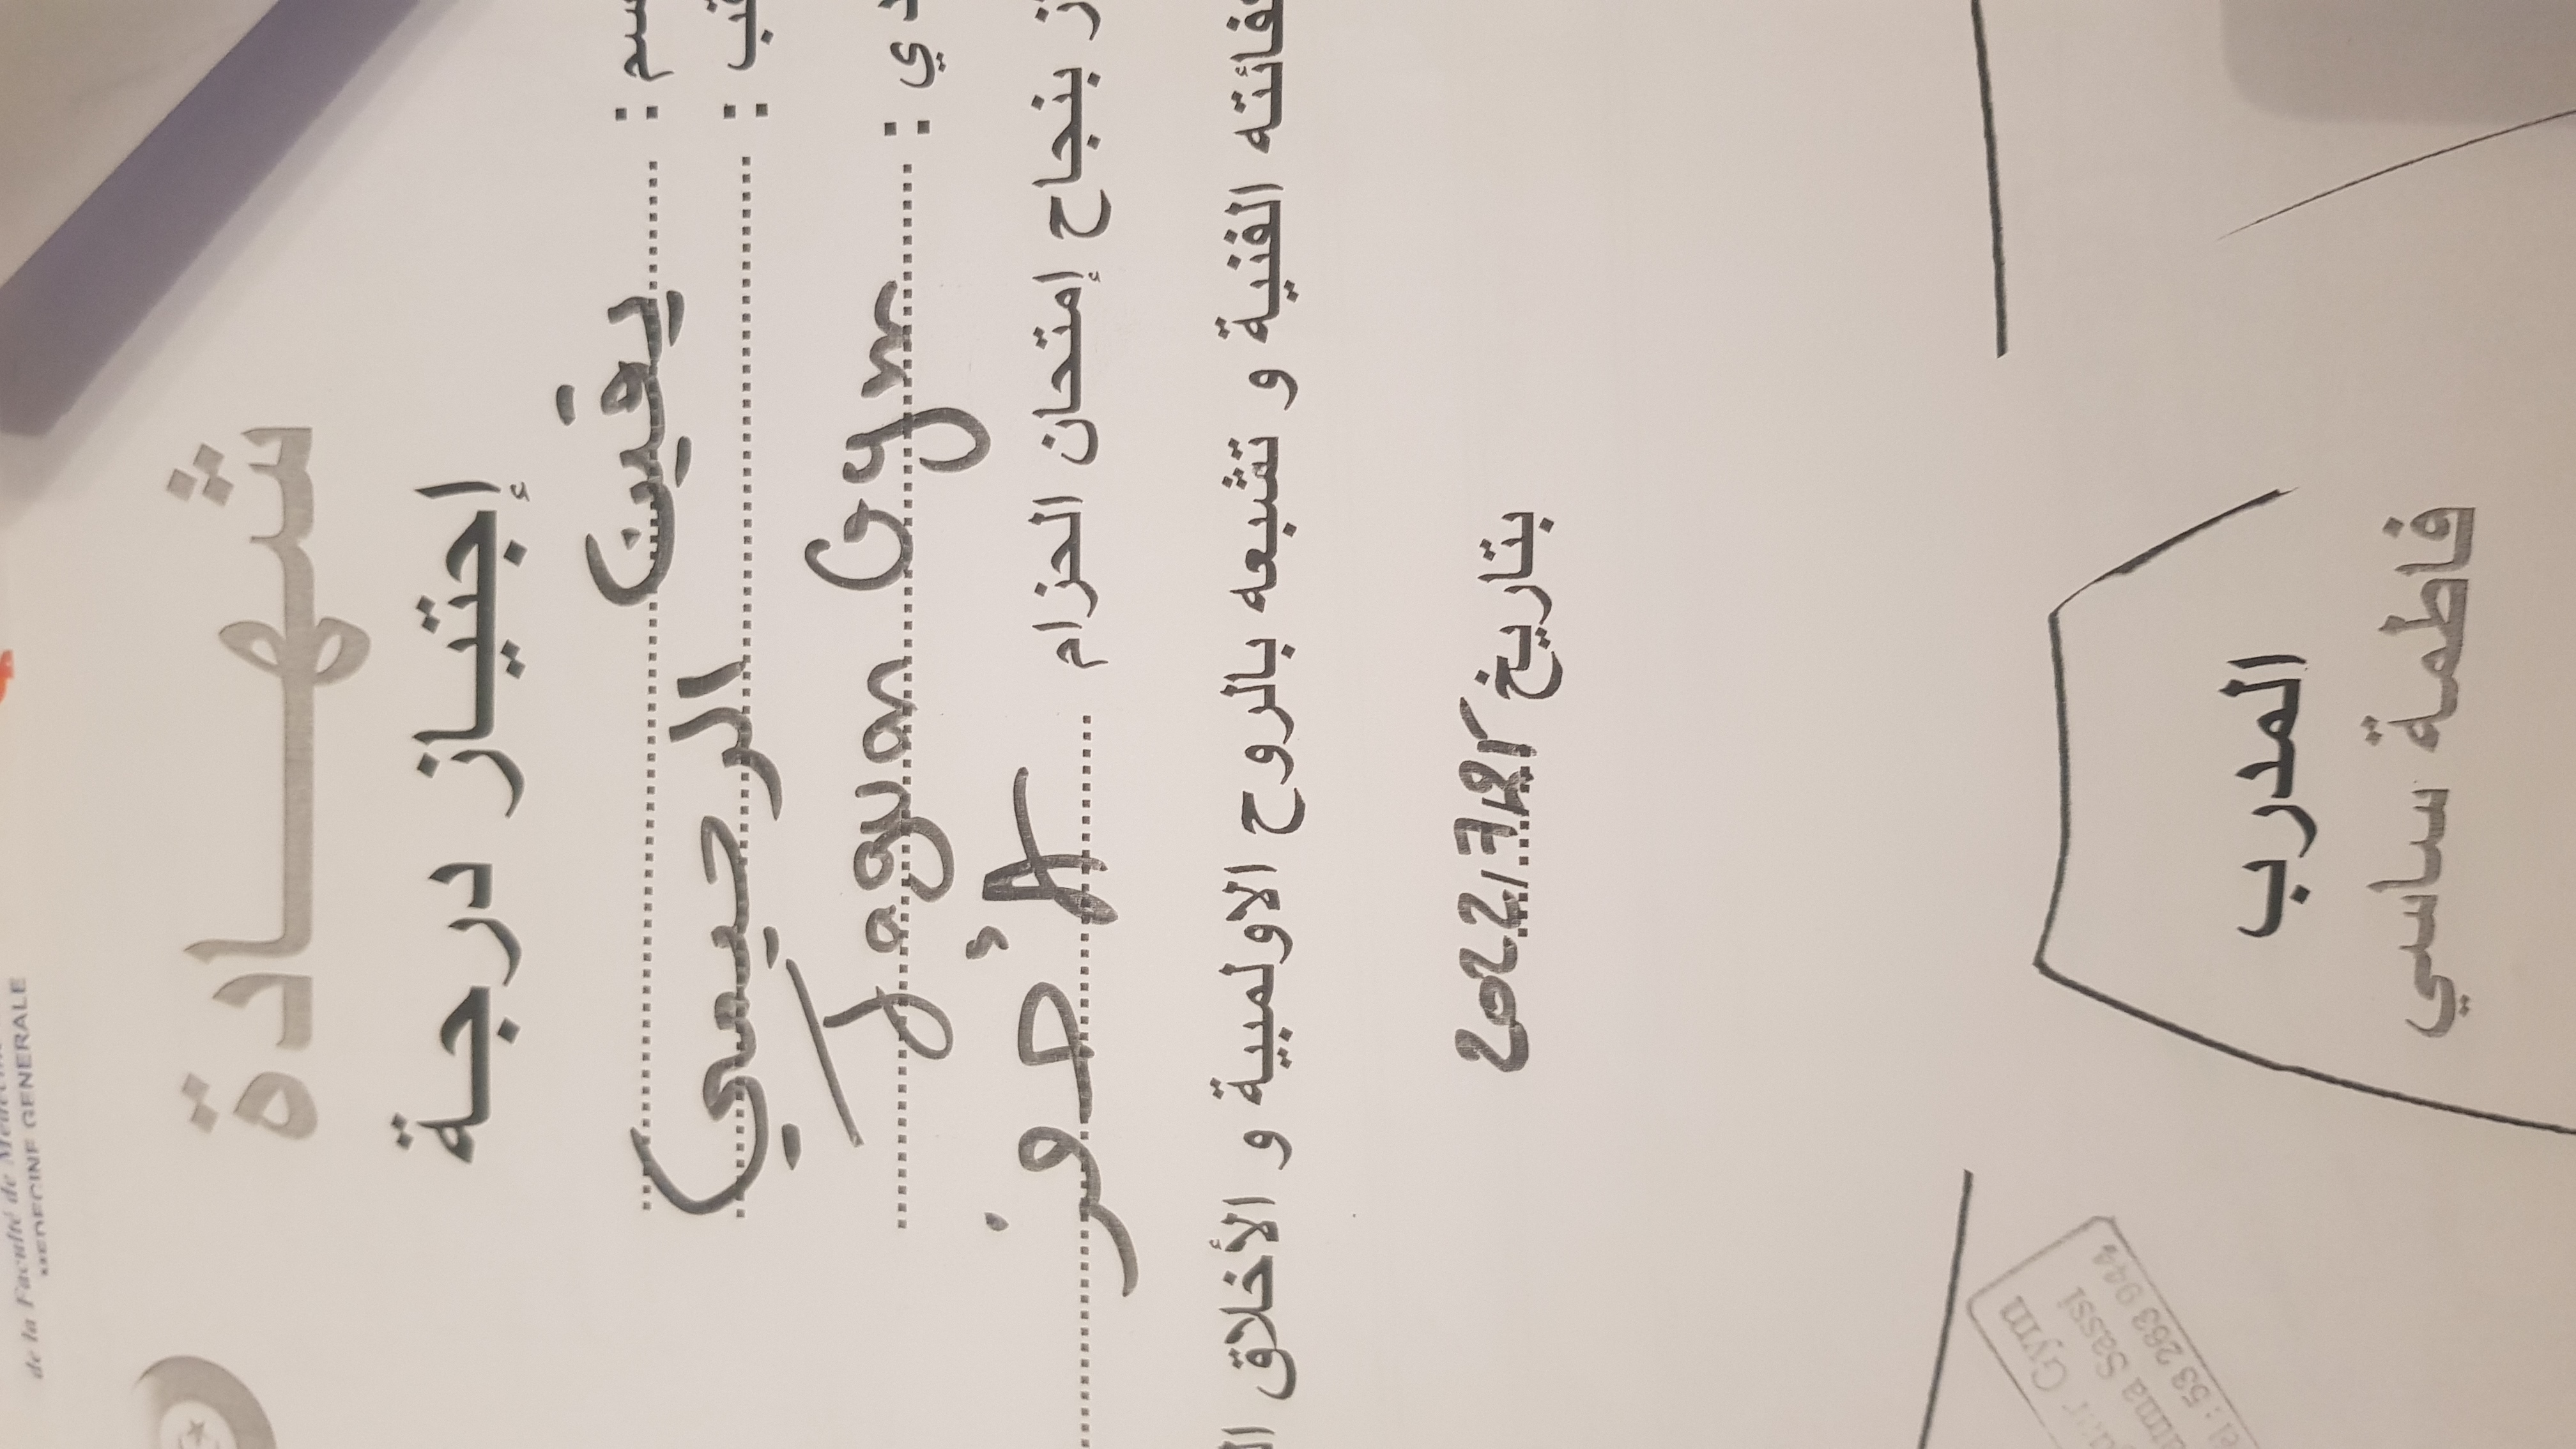 de la Faculté de Médecine
MEDECINE GENERALE
شهادة
إجتياز درجة
سم : يقين
قب : الرحيمي
دي : Jaguar Gym
ز بنجاح إمتحان الحزام
الأصفر
فائته الفنية و تشبعه بالروح الاولمبية و الأخلاق ال
بتاريخ 2022/7/21
المدرب
فاطمة ساسي
Gym
Sassi
: 53 263 944